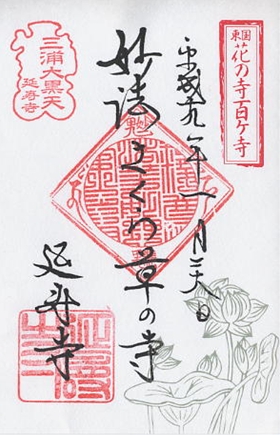 東国
花の寺百ケ寺
平成十九年一月二六日
妙法
さくら草の寺
延寿寺
三浦大黒天
延寿寺